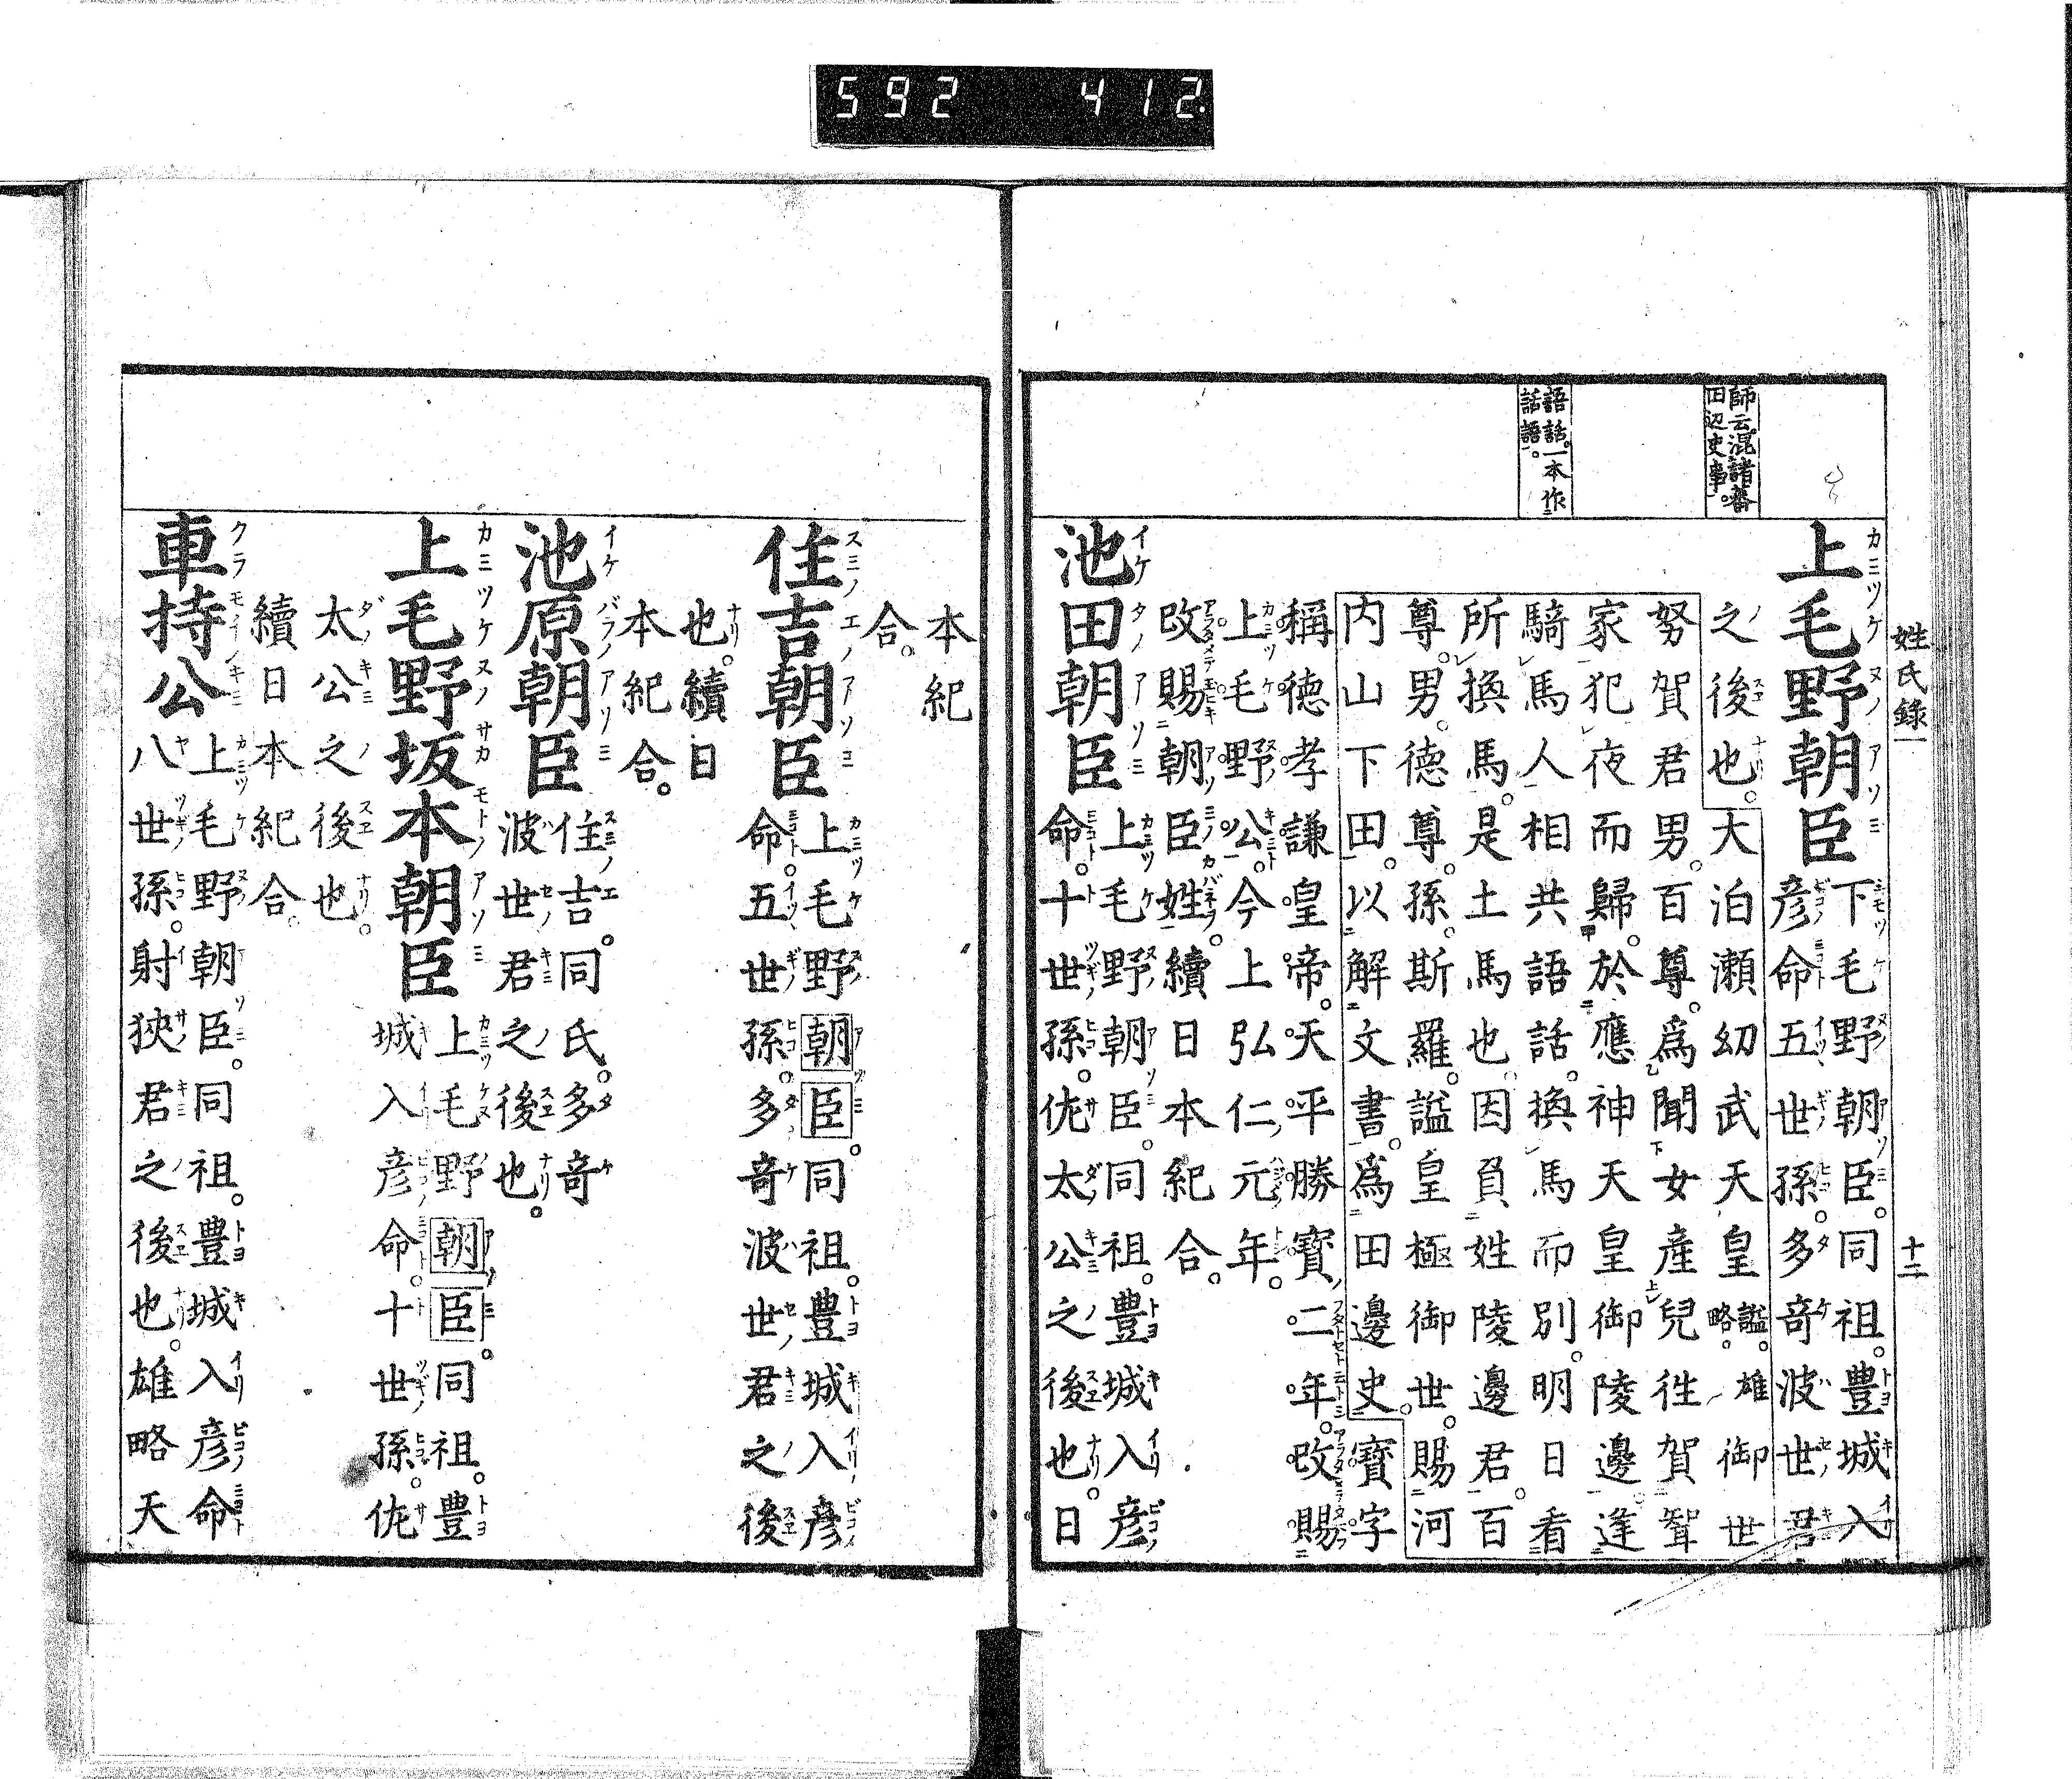 592 412.
姓氏錄一 十二
師云。混諸蕃
田辺史事。
語話。一本作
話語。
上毛野朝臣
下毛野朝臣。同祖。豊城入
彦命五世孫。多奇波世君
之後也。大泊瀬幼武天皇
諡。
略。
雄
御世
努賀君男。百尊。爲聞女産兒徃賀聟
家犯夜而歸。於應神天皇御陵邊逢
騎馬人相共語話。換馬而別。明日看
所換馬。是土馬也。因負姓陵邊君。百
尊。男。德尊。孫。斯羅。諡皇極御世。賜河
内山下田。以解文書。爲田邊史。寶字
稱德孝謙皇帝。天平勝寶二年。改賜
上毛野公。今上弘仁元年。
改賜朝臣姓。續日本紀合。
池田朝臣
上毛野朝臣。同祖。豊城入彦
命。十世孫。佐太公之後也。日
本紀
合。
住吉朝臣
上毛野朝臣。同祖。豊城入彦
命。五世孫。多奇波世君之後
也。續日
本紀合。
池原朝臣
住吉。同氏。多奇
波世君之後也。
上毛野坂本朝臣
上毛野朝臣。同祖。豊
城入彦命。十世孫。佐
太公之後也。
續日本紀合。
車持公
上毛野朝臣。同祖。豊城入彦命
八世孫。射狹君之後也。雄略天